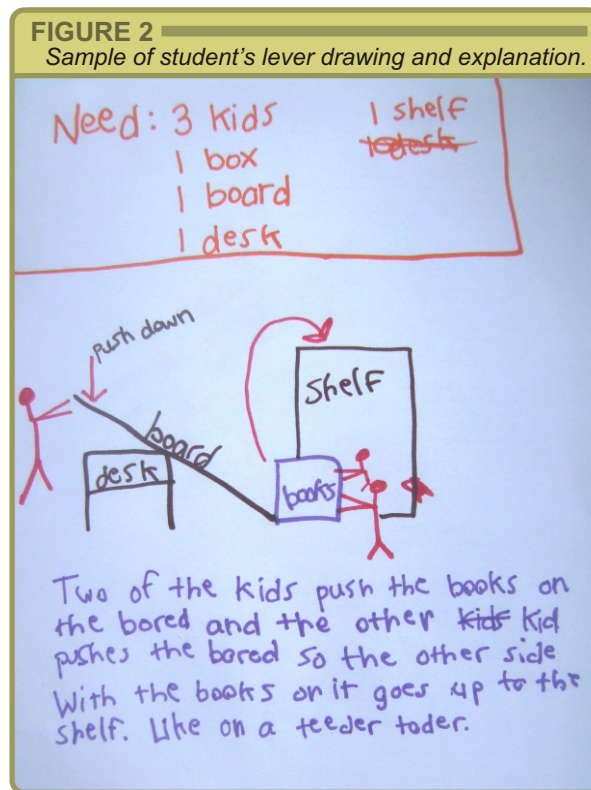 FIGURE 2
Sample of student's lever drawing and explanation.
Need: 3 kids
1 box
1 board
1 desk
1 shelf
push down
board
desk
shelf
books
Two of the kids push the books on
the bored and the other kids Kid
pushes the bored so the other side
With the books on it goes up to the
shelf. Like on a teeder toder.